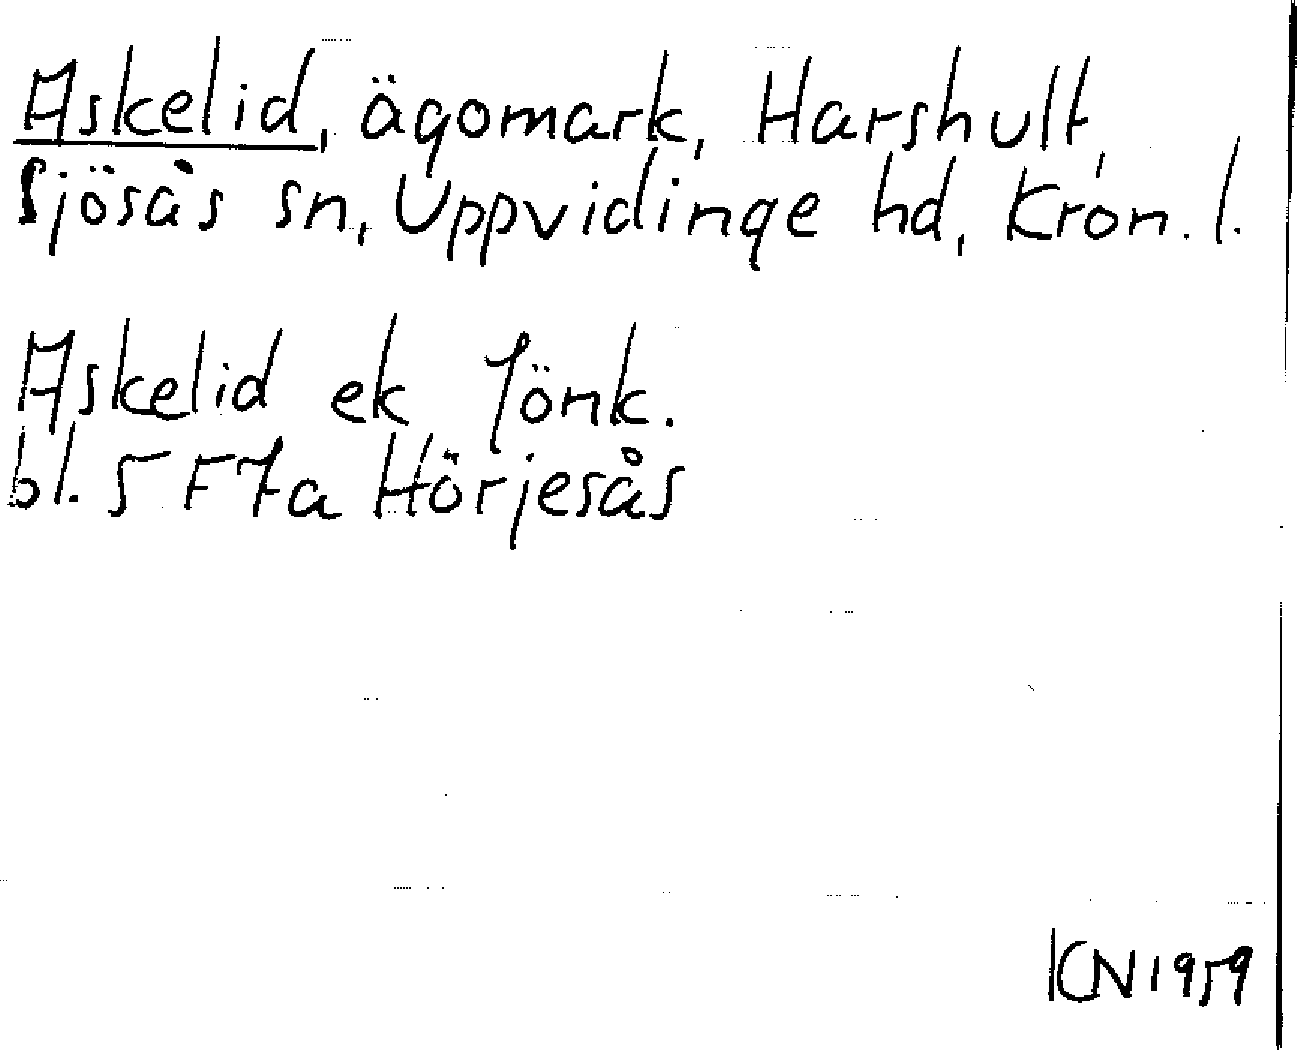 Askelid, ägomark, Harshult,
Sjösås sn, Uppvidinge hd, Kron. l.
Askelid ek Jönk.
bl. 5 F7a Hörjesås
KN 1959